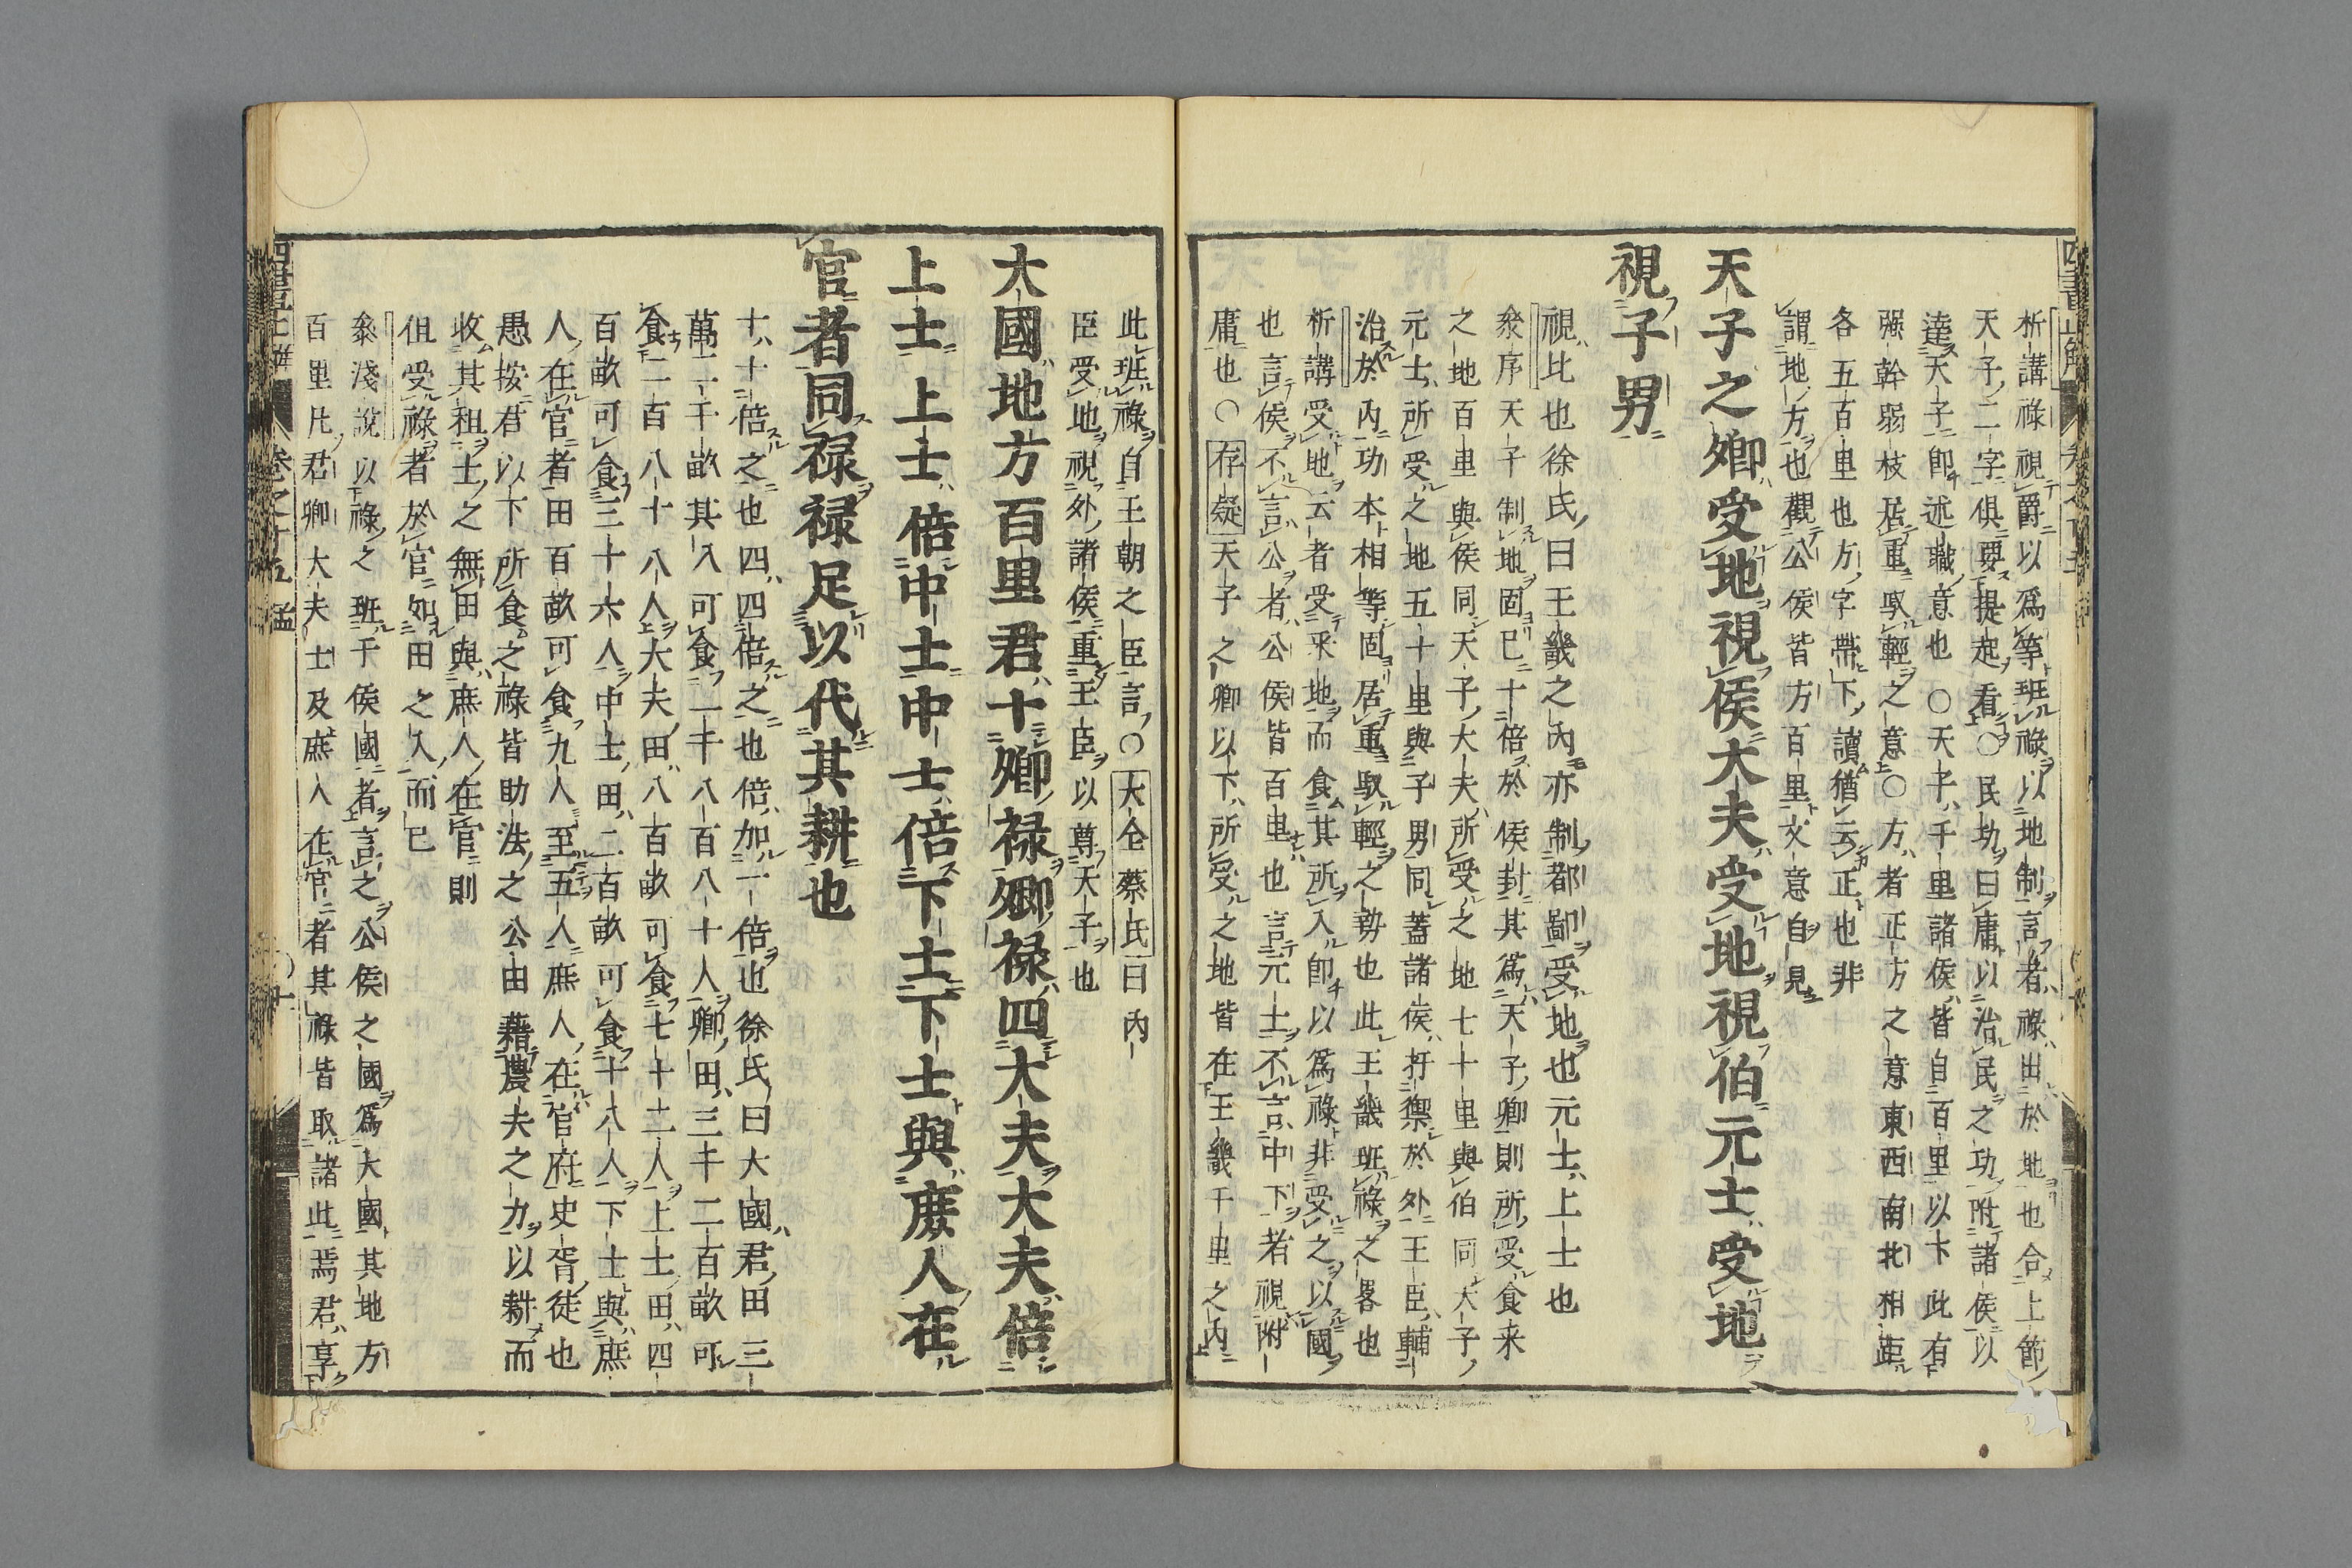 析講祿視爵以爲等班祿以地制言者祿出於地也合上節
天子二字俱要提起看○民功曰庸以治民之功附諸侯以
達天子卽述職意也○天子千里諸侯皆自百里以下此有
强幹弱枝居重馭輕之意○方者正方之意東西南北相距
各五百里也方字帶下讀猶云正也非
謂地方也觀公侯皆方百里文意自見
天子之卿受地視侯大夫受地視伯元士受地
視子男
視比也徐氏曰王畿之內亦制都鄙受地也元士上士也
叅序天子制地固已十倍於侯封其爲天子卿則所受食采
之地百里與侯同天子大夫所受之地七十里與伯同天子
元士所受之地五十里與子男同蓋諸侯扞禦於外王臣輔
治於內功本相等固居重馭輕之勢也此王畿班祿之畧也
析講受地云者受采地而食其所入卽以爲祿非受之以國
也言侯不言公者公侯皆百里也言元士不言中下者視附
庸也○存疑天子之卿以下所受之地皆在王畿千里之內
此班祿自王朝之臣言○大全蔡氏曰內
臣受地視外諸侯重王臣以尊天子也
大國地方百里君十卿禄卿禄四大夫大夫倍
上士上士倍中士中士倍下士下士與庶人在
官者同禄禄足以代其耕也
十十倍之也四四倍之也倍加一倍也徐氏曰大國君田三
萬二千畝其入可食二千八百八十人卿田三千二百畝可
食二百八十八人大夫田八百畝可食七十二人上士田四
百畝可食三十六人中士田二百畝可食十八人下士與庶
人在官者田百畝可食九人至五人庶人在官府史胥徒也
愚按君以下所食之祿皆助法之公由藉農夫之力以耕而
收其租士之無田與庶人在官則
但受祿者於官如田之入而已
叅淺說以祿之班于侯國者言之公侯之國爲大國其地方
百里凡君卿大夫士及庶人在官者其祿皆取諸此焉君享
四書正解 卷之十五 孟